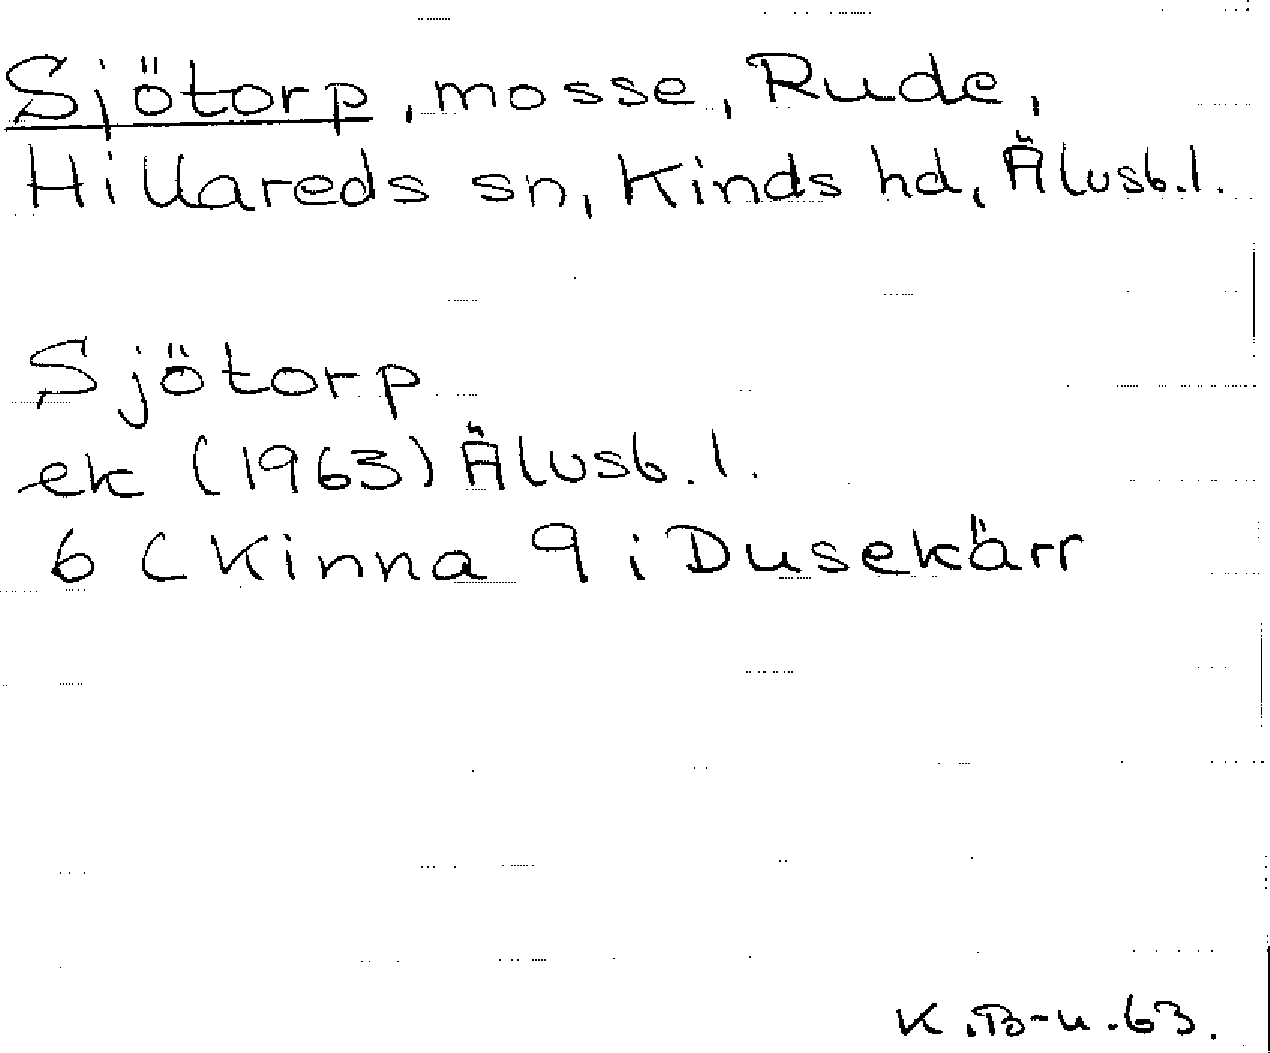 Sjötorp, mosse, Rude,
Hillareds sn, Kinds hd, Älvsb.l.
Sjötorp
ek (1963) Älvsb.l.
6 C Kinna 9 i Dusekärr
K.B-n.63.